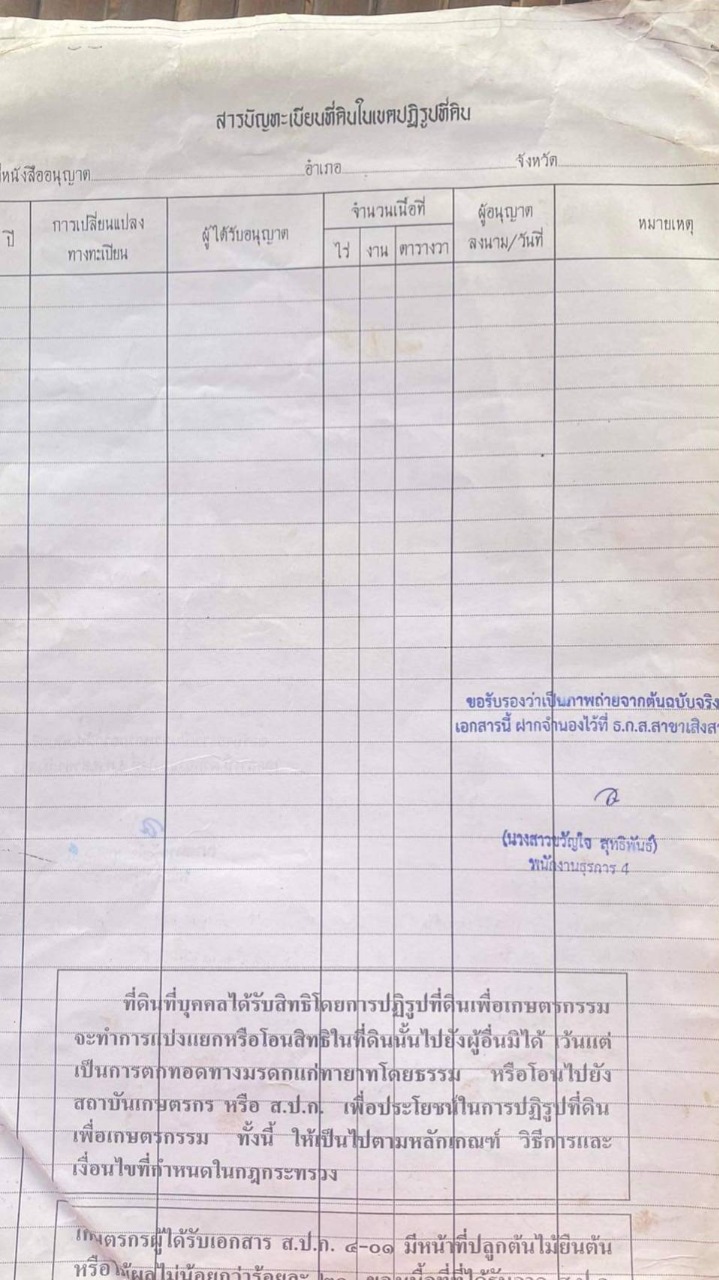 สารบัญทะเบียนที่ดินในเขตปฏิรูปที่ดิน
ที่หนังสืออนุญาต อำเภอ จังหวัด
ปี การเปลี่ยนแปลง ผู้ได้รับอนุญาต จำนวนเนื้อที่ ผู้อนุญาต หมายเหตุ
ทางทะเบียน ไร่ งาน ตารางวา ลงนาม/วันที่
ขอรับรองว่าเป็นภาพถ่ายจากต้นฉบับจริง
เอกสารนี้ ฝากจำนองไว้ที่ ธ.ก.ส.สาขาเสิงสา
(นางสาวขวัญใจ สุทธิพันธ์)
พนักงานธุรการ 4
ที่ดินที่บุคคลได้รับสิทธิโดยการปฏิรูปที่ดินเพื่อเกษตรกรรม
จะทำการแบ่งแยกหรือโอนสิทธิในที่ดินนั้นไปยังผู้อื่นมิได้ เว้นแต่
เป็นการตกทอดทางมรดกแก่ทายาทโดยธรรม หรือโอนไปยัง
สถาบันเกษตรกร หรือ ส.ป.ก. เพื่อประโยชน์ในการปฏิรูปที่ดิน
เพื่อเกษตรกรรม ทั้งนี้ ให้เป็นไปตามหลักเกณฑ์ วิธีการและ
เงื่อนไขที่กำหนดในกฎกระทรวง
เกษตรกรผู้ได้รับเอกสาร ส.ป.ก. ๔-๐๑ มีหน้าที่ปลูกต้นไม้ยืนต้น
หรือให้ผลไม่น้อยกว่าร้อยละ